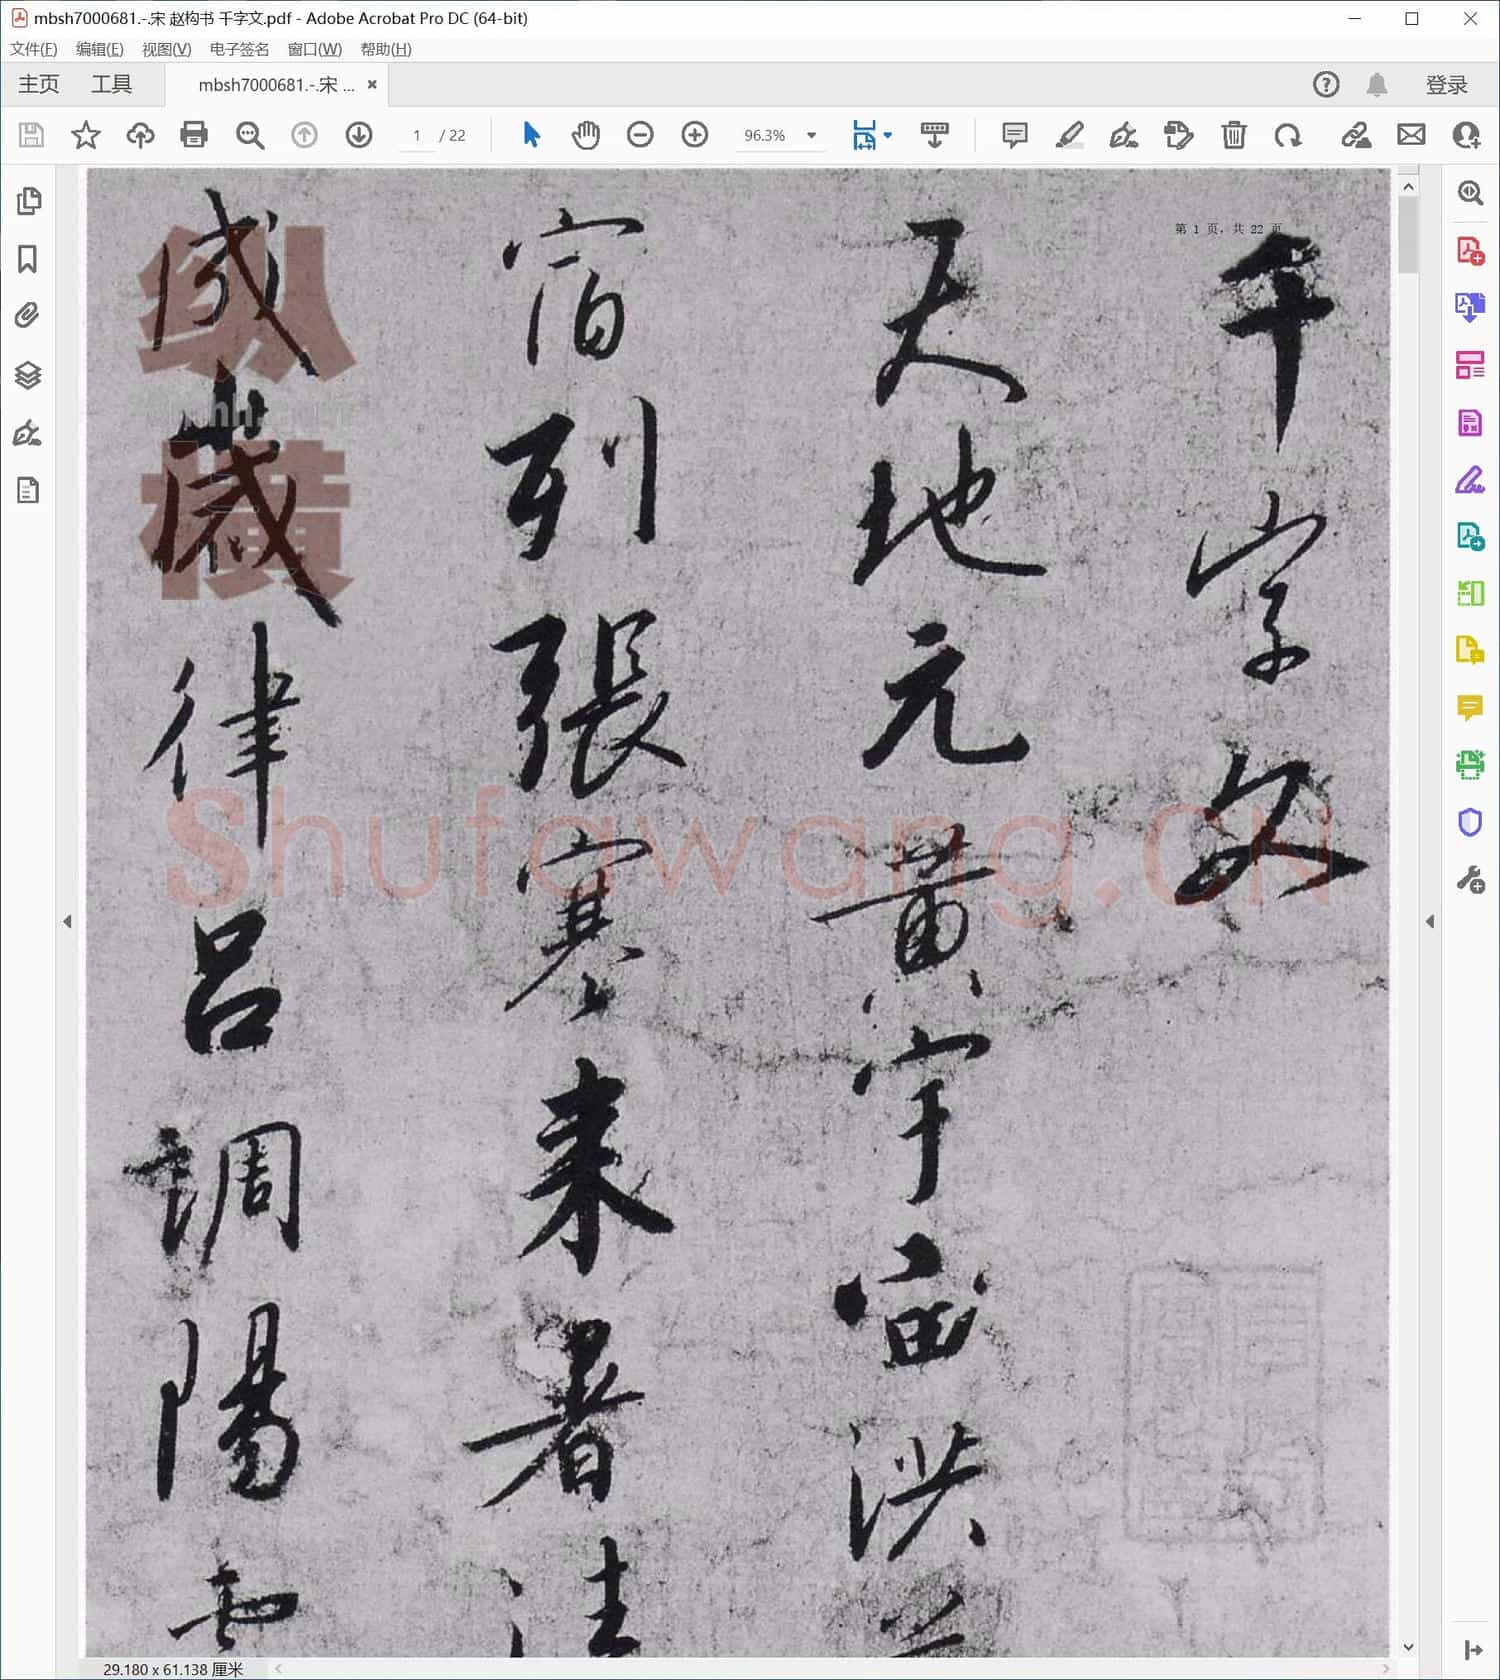 mbsh7000681.-.宋 赵构书 千字文.pdf - Adobe Acrobat Pro DC (64-bit)
文件(F) 编辑(E) 视图(V) 电子签名 窗口(W) 帮助(H)
主页 工具 mbsh7000681.-.宋 ... 登录
1 / 22 96.3%
第 1 页，共 22 页
千字文
天地元黄宇宙洪
宿列張寒来暑
成歲律呂調陽
纵横
Shufawang.CN
29.180 x 61.138 厘米